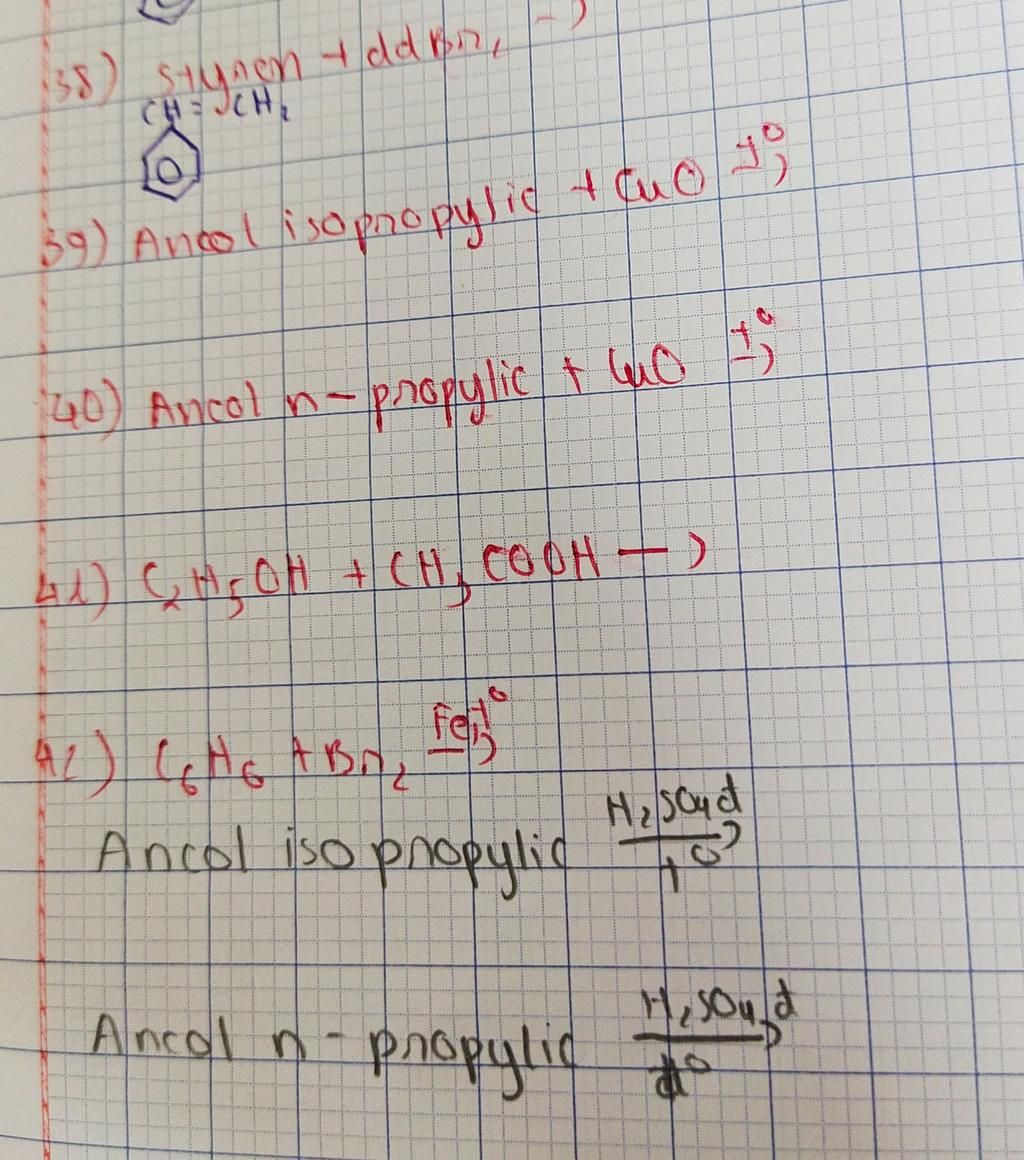 38) styren + ddBr₂ →
CH = CH₂
39) Ancol isopropylic + CuO t°→
40) Ancol n-propylic + CuO t°→
41) C₂H₅OH + CH₃COOH →
42) C₆H₆ + Br₂ Fe,t°→
Ancol isopropylic H₂SO₄ đ→ t°
Ancol n-propylic H₂SO₄ đ→ t°